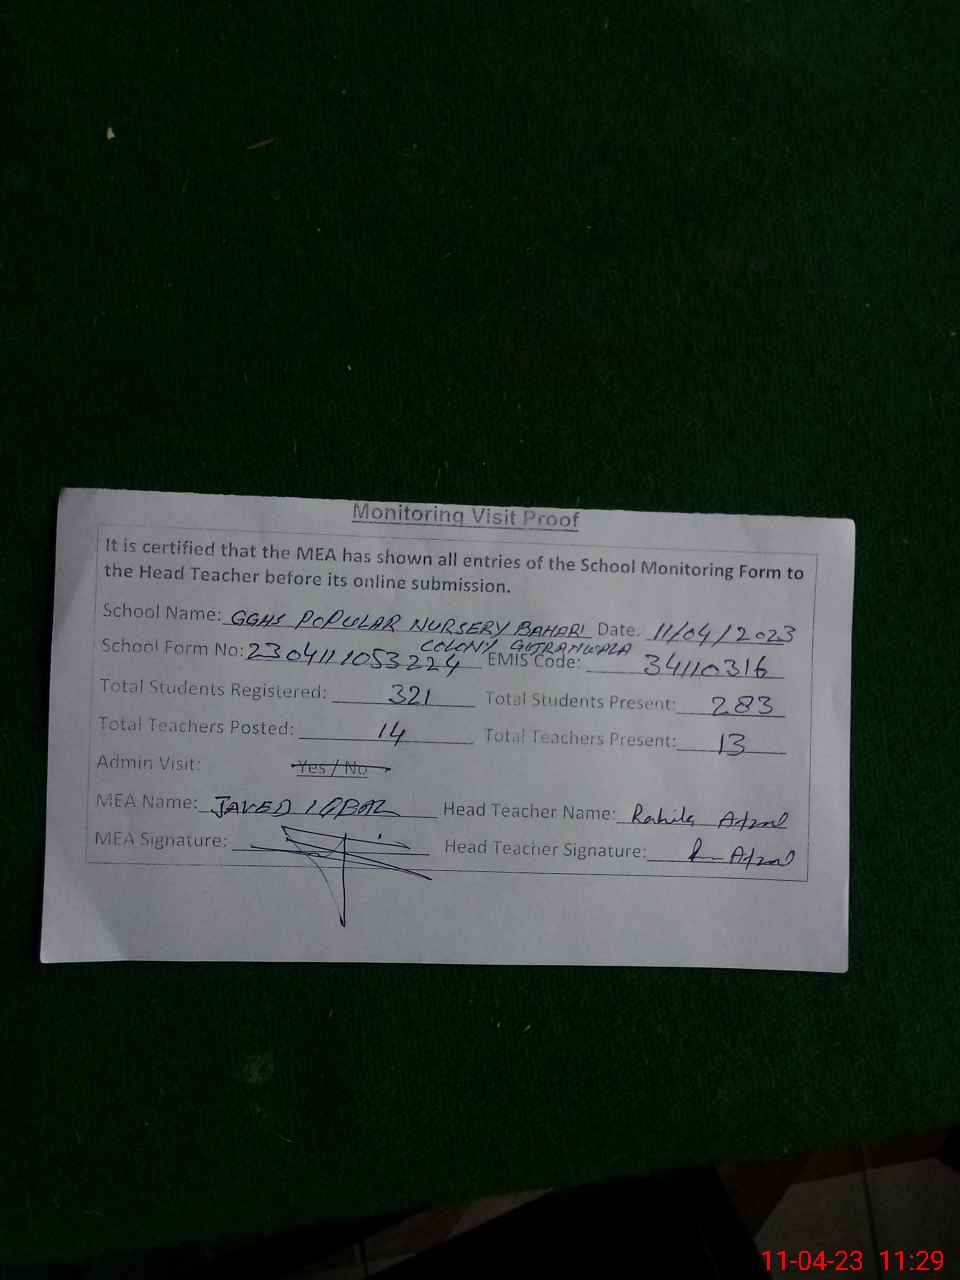 Monitoring Visit Proof
It is certified that the MEA has shown all entries of the School Monitoring Form to
the Head Teacher before its online submission.
School Name: GGHS POPULAR NURSERY BAHARI Date: 11/04/2023
COLONY GUJRANWALA
School Form No: 2304111053224 EMIS Code: 34110316
Total Students Registered: 321 Total Students Present: 283
Total Teachers Posted: 14 Total Teachers Present: 13
Admin Visit: Yes / No
MEA Name: JAVED IQBAL Head Teacher Name: Rahila Afzal
MEA Signature: Head Teacher Signature: R Afzal
11-04-23 11:29